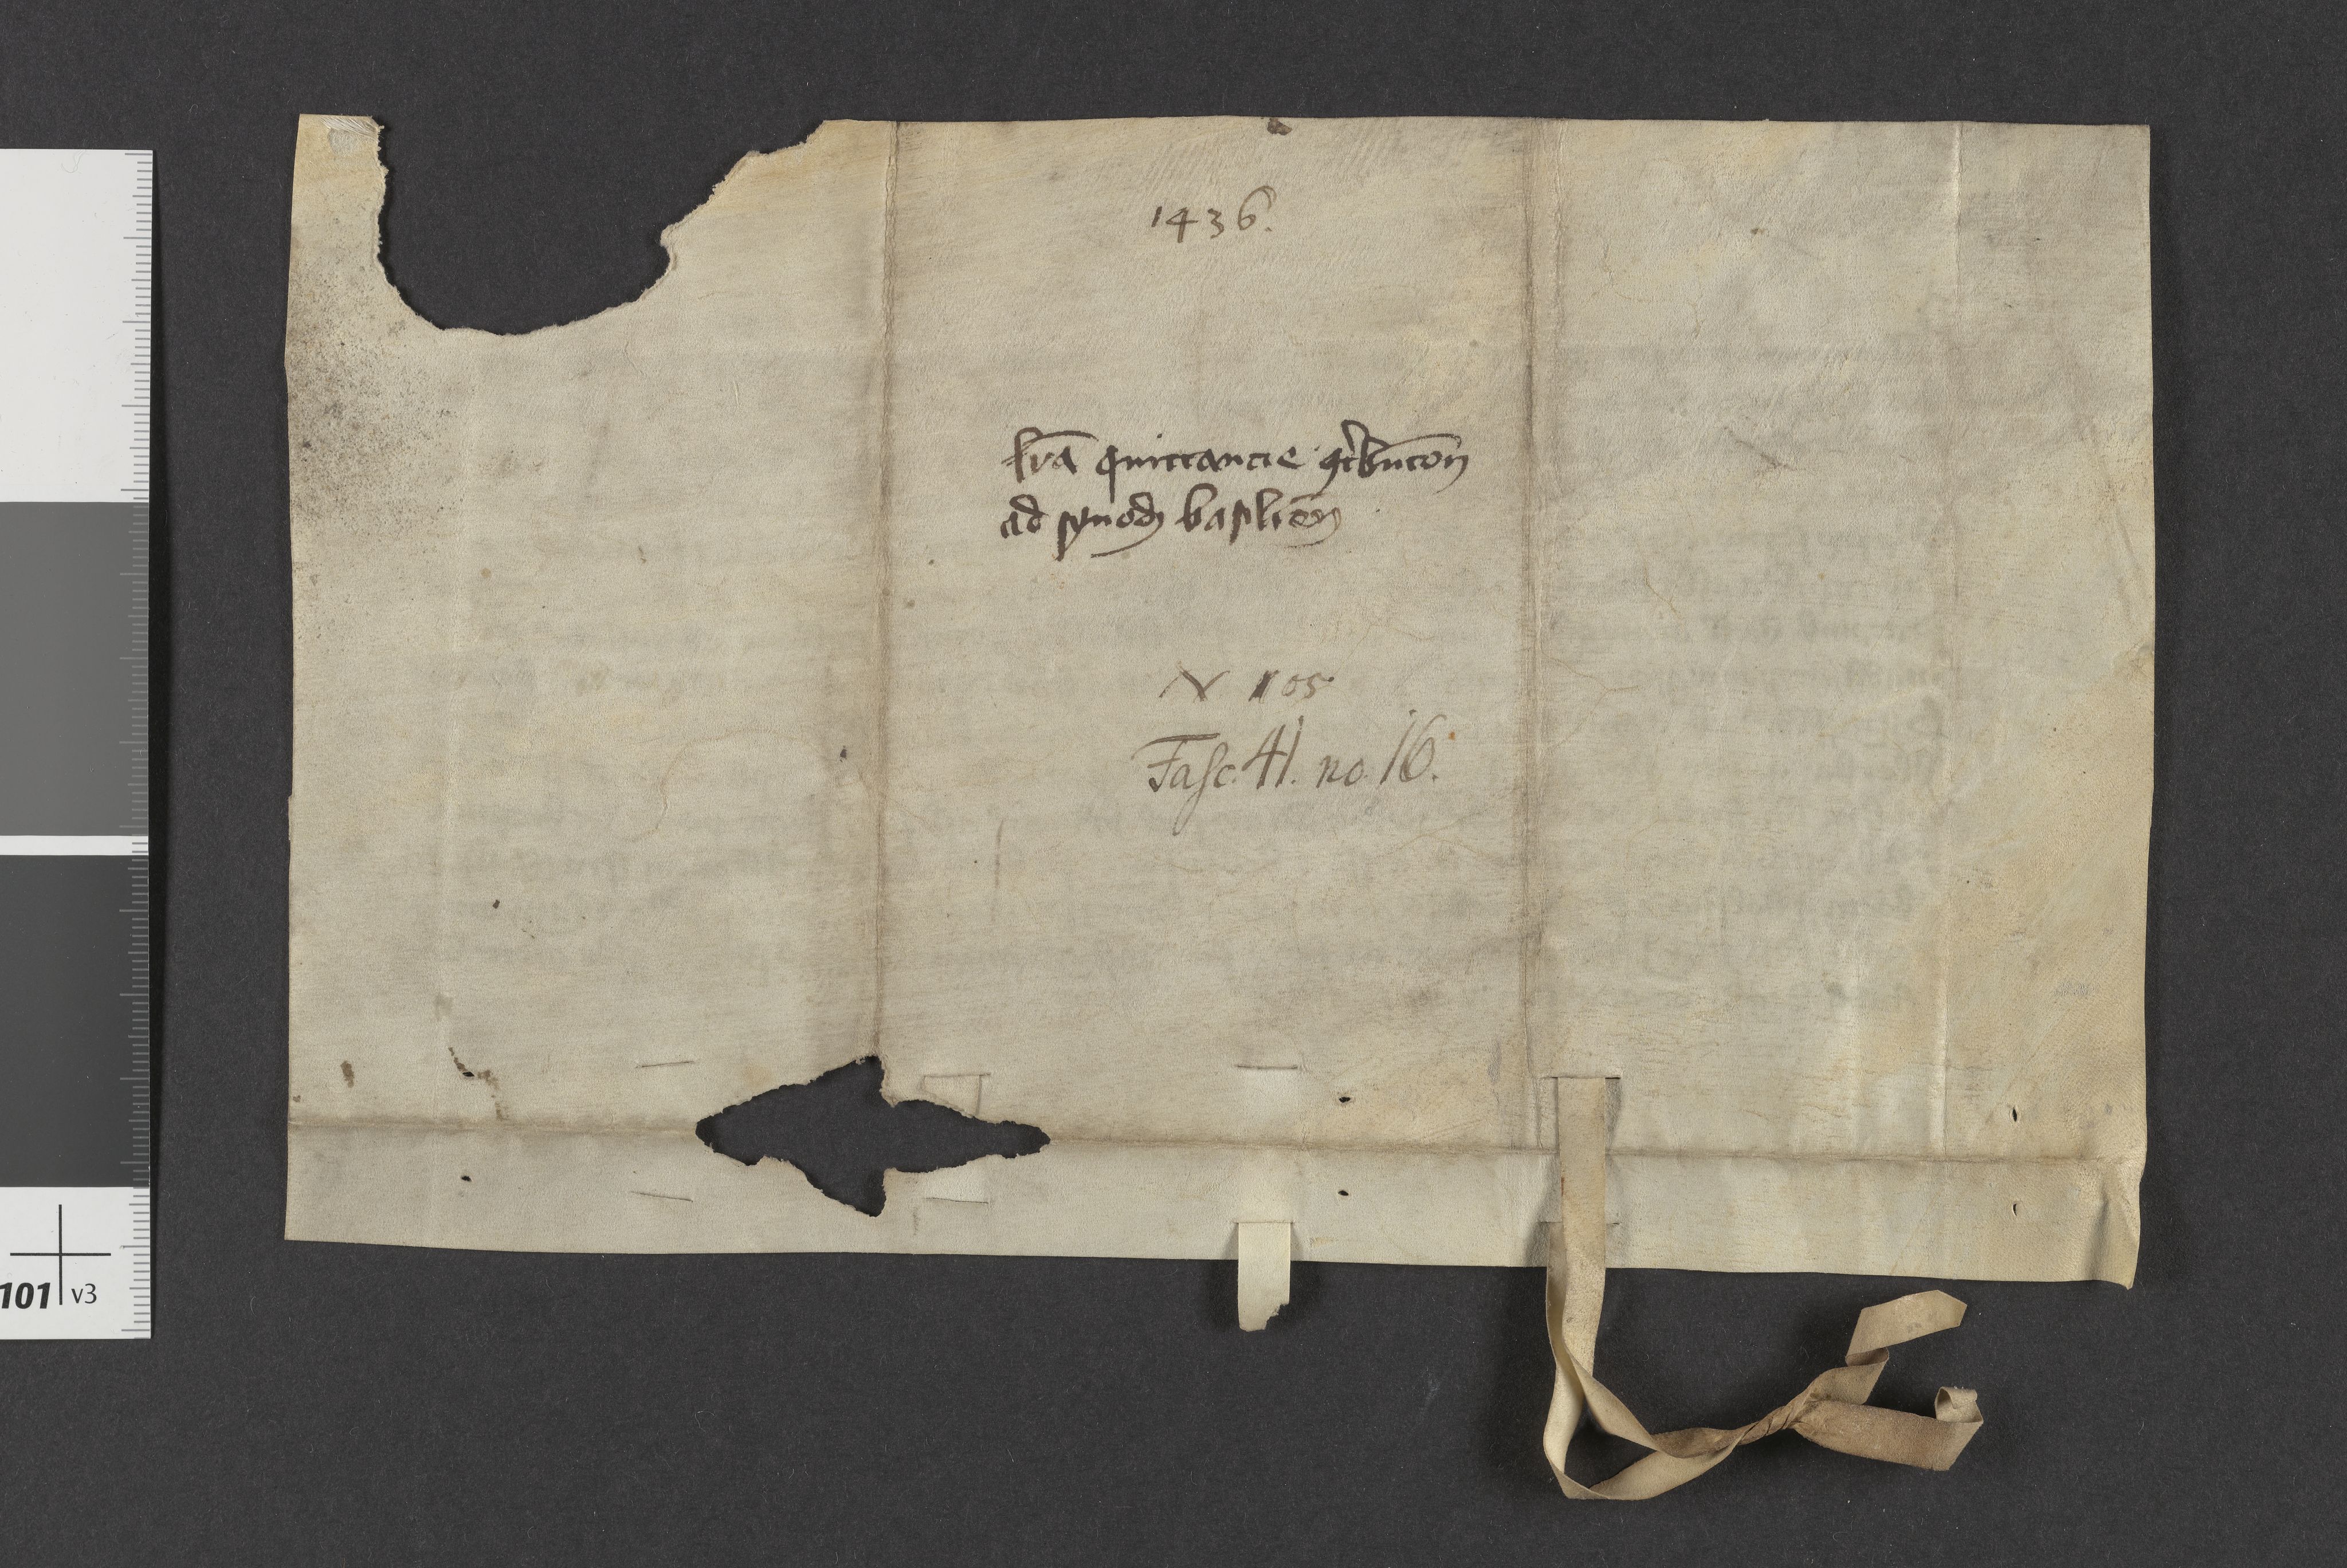 1436.
lrā quittancie 9tbūcon
ad synodū baslien̄
N 105
Fasc. 41. no. 16.
101 v3